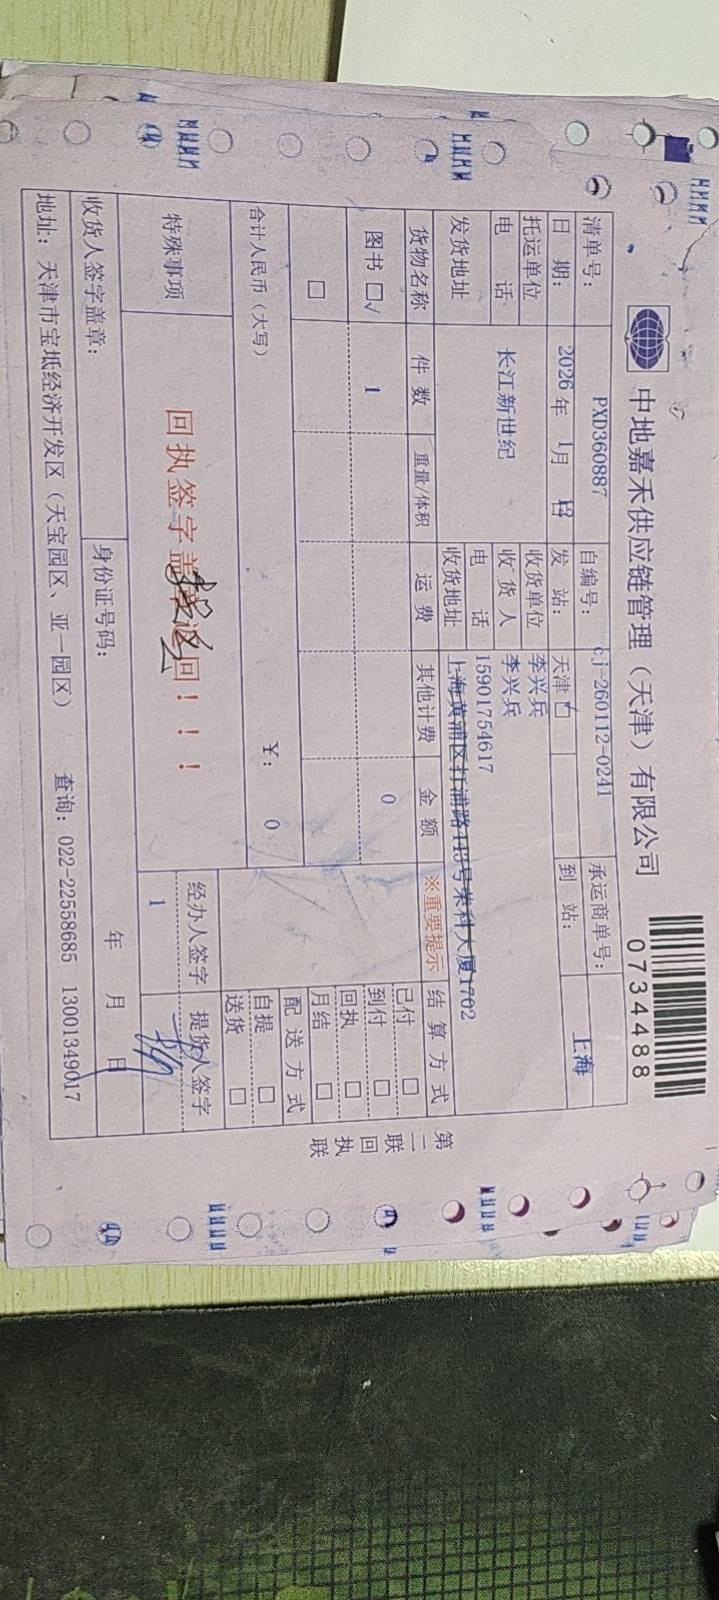 中地嘉禾供应链管理（天津）有限公司
0734488
清单号： PXD360887 自编号： cj-260112-0241 承运商单号：
日 期： 2026 年 1月 发 站： 天津 到 站： 上海
托运单位 长江新世纪 收货单位 李兴兵
收 货 人 李兴兵
电 话 电 话 15901754617
发货地址 收货地址 上海黄浦区打浦路443号荣科大厦1702
货物名称 件 数 重量/体积 运 费 其他计费 金 额 ※重要提示 结 算 方 式
图书 □√ 1 0
□
已付 □
到付 □
回执 □
月结 □
配 送 方 式
自提 □
送货 □
合计人民币（大写） ¥： 0
特殊事项 回执签字盖 回！！！
经办人签字 提货人签字
1
收货人签字盖章： 身份证号码： 年 月 日
地址：天津市宝坻经济开发区（天宝园区、亚一园区） 查询：022-22558685 13001349017
第二联 回执联